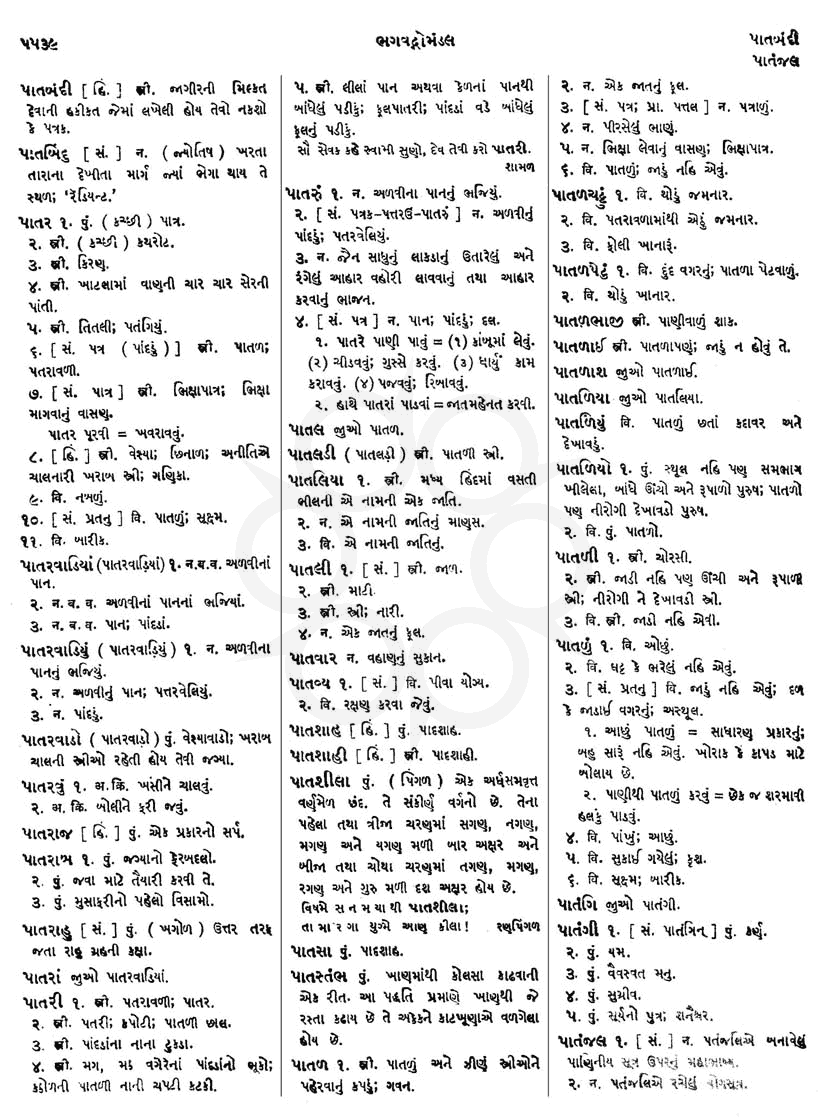 ૫૫૩૯
ભગવદ્ગોમંડલ
પાતબંદી
પાતંજલ
પાતબંદી [ હિં. ] સ્ત્રી. જાગીરની મિલ્કત
દેવાની હકીકત જેમાં લખેલી હોય તેવો નકશો
કે પત્રક.
પાતબિંદુ [ સં. ] ન. ( જ્યોતિષ ) ખરતા
તારાના દેખીતા માર્ગ જ્યાં ભેગા થાય તે
સ્થળ; ‘રેડિયન્ટ.’
પાતર ૧. પું. ( કચ્છી ) પાત્ર.
૨. સ્ત્રી. ( કચ્છી ) કથરોટ.
૩. સ્ત્રી. કિરણ.
૪. સ્ત્રી. ખાટલામાં વાણની ચાર ચાર સેરની
પાંતી.
૫. સ્ત્રી. તિતલી; પતંગિયું.
૬. [ સં. પત્ર ( પાંદડું ) ] સ્ત્રી. પાતળ;
પતરાવળી.
૭. [ સં. પાત્ર ] સ્ત્રી. ભિક્ષાપાત્ર; ભિક્ષા
માગવાનું વાસણ.
પાતર પૂરવી = ખવરાવવું.
૮. [ હિં. ] સ્ત્રી. વેશ્યા; છિનાળ; અનીતિએ
ચાલનારી ખરાબ સ્ત્રી; ગણિકા.
૯. વિ. નબળું.
૧૦. [ સં. પ્રતનુ ] વિ. પાતળું; સૂક્ષ્મ.
૧૧. વિ. બારીક.
પાતરવાડિયાં (પાતરવાડ઼િયાં) ૧. ન.બ.વ. અળવીનાં
પાન.
૨. ન. બ. વ. અળવીનાં પાનનાં ભજિયાં.
૩. ન. બ. વ. પાન; પાંદડાં.
પાતરવાડિયું ( પાતરવાડ઼િયું ) ૧. ન. અળવીના
પાનનું ભજિયું.
૨. ન. અળવીનું પાન; પત્તરવેલિયું.
૩. ન. પાંદડું.
પાતરવાડો ( પાતરવાડ઼ો ) પું. વેશ્યાવાડો; ખરાબ
ચાલની સ્ત્રીઓ રહેતી હોય તેવી જગ્યા.
પાતરવું ૧. અ.ક્રિ. ખસીને ચાલવું.
૨. અ.ક્રિ. બોલીને ફરી જવું.
પાતરાજ [ હિં. ] પું. એક પ્રકારનો સર્પ.
પાતરાબ ૧. પું. જગ્યાનો ફેરબદલો.
૨. પું. જવા માટે તૈયારી કરવી તે.
૩. પું. મુસાફરીનો પહેલો વિસામો.
પાતરાહુ [ સં. ] પું. ( ખગોળ ) ઉત્તર તરફ
જતા રાહુ ગ્રહની કક્ષા.
પાતરાં જુઓ પાતરવાડિયાં.
પાતરી ૧. સ્ત્રી. પતરાવળી; પાતર.
૨. સ્ત્રી. પતરી; કપોટી; પાતળી છાલ.
૩. સ્ત્રી. પાંદડાંના નાના ટુકડા.
૪. સ્ત્રી. મગ, મઠ વગેરેનાં પાંદડાંનો ભૂકો;
કઠોળની પાતળી નાની ચપટી કટકી.
૫. સ્ત્રી. લીલાં પાન અથવા કેળનાં પાનથી
બાંધેલું પડીકું; ફૂલપાતરી; પાંદડાં વડે બાંધેલું
ફૂલનું પડીકું.
સૌ સેવક કહે સ્વામી સુણો, દેવ તેવી કરો પાતરી.
શામળ
પાતરું ૧. ન. અળવીના પાનનું ભજિયું.
૨. [ સં. પત્રક-પત્તરઉ-પાતરું ] ન. અળવીનું
પાંદડું; પતરવેલિયું.
૩. ન. જૈન સાધુનું લાકડાનું ઉતારેલું અને
રંગેલું આહાર વહોરી લાવવાનું તથા આહાર
કરવાનું ભાજન.
૪. [ સં. પત્ર ] ન. પાન; પાંદડું; દલ.
૧. પાતરે પાણી પાવું = (૧) કાંખમાં લેવું.
(૨) ચીડવવું; ગુસ્સે કરવું. (૩) ધાર્યું કામ
કરાવવું. (૪) પજવવું; રિબાવવું.
૨. હાથે પાતરાં પાડવાં = જાતમહેનત કરવી.
પાતલ જુઓ પાતળ.
પાતલડી ( પાતલડ઼ી ) સ્ત્રી. પાતળી સ્ત્રી.
પાતલિયા ૧. સ્ત્રી. મધ્ય હિંદમાં વસતી
ભીલની એ નામની એક જાતિ.
૨. ન. એ નામની જાતિનું માણસ.
૩. વિ. એ નામની જાતિનું.
પાતલી ૧. [ સં. ] સ્ત્રી. જાળ.
૨. સ્ત્રી. માટી.
૩. સ્ત્રી. સ્ત્રી; નારી.
૪. ન. એક જાતનું ફૂલ.
પાતવાર ન. વહાણનું સુકાન.
પાતવ્ય ૧. [ સં. ] વિ. પીવા યોગ્ય.
૨. વિ. રક્ષણ કરવા જેવું.
પાતશાહ [ હિં. ] પું. પાદશાહ.
પાતશાહી [ હિં. ] સ્ત્રી. પાદશાહી.
પાતશીલા પું. ( પિંગળ ) એક અર્ધસમવૃત્ત
વર્ણમેળ છંદ. તે સંકીર્ણ વર્ગનો છે. તેના
પહેલા તથા ત્રીજા ચરણમાં સગણ, નગણ,
મગણ અને યગણ મળી બાર અક્ષર અને
બીજા તથા ચોથા ચરણમાં તગણ, મગણ,
રગણ અને ગુરુ મળી દશ અક્ષર હોય છે.
વિષમે સ ન મ યા થી પાતશીલા;
તા મા ર ગા યુગ્મે આણ કીલા! રણપિંગળ
પાતસા પું. પાદશાહ.
પાતસ્તંભ પું. ખાણમાંથી કોલસા કાઢવાની
એક રીત. આ પદ્ધતિ પ્રમાણે ખાણથી જે
રસ્તા કઢાય છે તે અકેકને કાટખૂણાએ વળગેલા
હોય છે.
પાતળ ૧. સ્ત્રી. પાતળું અને ઝીણું સ્ત્રીઓને
પહેરવાનું કપડું; ગવન.
૨. ન. એક જાતનું ફૂલ.
૩. [ સં. પત્ર; પ્રા. પત્તલ ] ન. પત્રાળું.
૪. ન. પીરસેલું ભાણું.
૫. ન. ભિક્ષા લેવાનું વાસણ; ભિક્ષાપાત્ર.
૬. વિ. પાતળું; જાડું નહિ એવું.
પાતળચટ્ટું ૧. વિ. થોડું જમનાર.
૨. વિ. પતરાવળામાંથી એઠું જમનાર.
૩. વિ. ફોલી ખાનારૂં.
પાતળપેટું ૧. વિ. દુંદ વગરનું; પાતળા પેટવાળું.
૨. વિ. થોડું ખાનાર.
પાતળભાજી સ્ત્રી. પાણીવાળું શાક.
પાતળાઈ સ્ત્રી. પાતળાપણું; જાડું ન હોવું તે.
પાતળાશ જુઓ પાતળાઈ.
પાતળિયા જુઓ પાતલિયા.
પાતળિયું વિ. પાતળું છતાં કદાવર અને
દેખાવડું.
પાતળિયો ૧. પું. સ્થૂલ નહિ પણ સમભાગ
ખીલેલા, બાંધે ઊંચો અને રૂપાળો પુરુષ; પાતળો
પણ નીરોગી દેખાવડો પુરુષ.
૨. વિ. પું. પાતળો.
પાતળી ૧. સ્ત્રી. ચોરસી.
૨. સ્ત્રી. જાડી નહિ પણ ઊંચી અને રૂપાળી
સ્ત્રી; નીરોગી ને દેખાવડી સ્ત્રી.
૩. વિ. સ્ત્રી. જાડી નહિ એવી.
પાતળું ૧. વિ. ઓછું.
૨. વિ. ઘટ્ટ કે ભરેલું નહિ એવું.
૩. [ સં. પ્રતનુ ] વિ. જાડું નહિ એવું; દળ
કે જડાઈ વગરનું; અસ્થૂલ.
૧. આછું પાતળું = સાધારણ પ્રકારનું;
બહુ સારૂં નહિ એવું. ખોરાક કે કાપડ માટે
બોલાય છે.
૨. પાણીથી પાતળું કરવું = છેક જ શરમાવી
હલકું પાડવું.
૪. વિ. પાંખું; આછું.
૫. વિ. સુકાઈ ગયેલું; કૃશ.
૬. વિ. સૂક્ષ્મ; બારીક.
પાતંગિ જુઓ પાતંગી.
પાતંગી ૧. [ સં. પાતંગિન્ ] પું. કર્ણ.
૨. પું. યમ.
૩. પું. વૈવસ્વત મનુ.
૪. પું. સુગ્રીવ.
૫. પું. સૂર્યનો પુત્ર; શનૈશ્વર.
પાતંજલ ૧. [ સં. ] ન. પતંજલિએ બનાવેલું
પાણિનીય સૂત્ર ઉપરનું મહાભાષ્ય.
૨. ન. પતંજલિએ રચેલું યોગસૂત્ર.